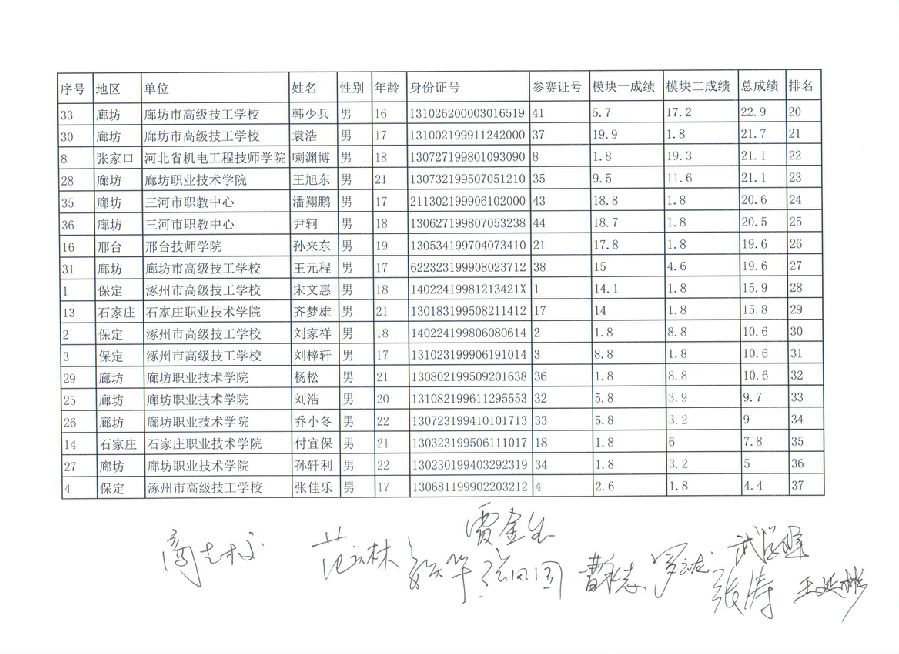 序号 地区 单位 姓名 性别 年龄 身份证号 参赛证号 模块一成绩 模块二成绩 总成绩 排名
33 廊坊 廊坊市高级技工学校 韩少兵 男 16 131025200003016519 41 5.7 17.2 22.9 20
30 廊坊 廊坊市高级技工学校 袁浩 男 17 131002199911242000 37 19.9 1.8 21.7 21
8 张家口 河北省机电工程技师学院 喇渊博 男 18 130727199801093090 8 1.8 19.3 21.1 22
28 廊坊 廊坊职业技术学院 王旭东 男 21 130732199507051210 35 9.5 11.6 21.1 23
35 廊坊 三河市职教中心 潘翔鹏 男 17 211302199906102000 43 18.8 1.8 20.6 24
36 廊坊 三河市职教中心 尹轲 男 18 130627199807053238 44 18.7 1.8 20.5 25
16 邢台 邢台技师学院 孙来东 男 19 130534199704073410 21 17.8 1.8 19.6 26
31 廊坊 廊坊市高级技工学校 王元程 男 17 622323199908023712 38 15 4.6 19.6 27
1 保定 涿州市高级技工学校 宋文惠 男 18 14022419981213421X 1 14.1 1.8 15.9 28
13 石家庄 石家庄职业技术学院 齐梦雄 男 21 130183199508211412 17 14 1.8 15.8 29
2 保定 涿州市高级技工学校 刘家祥 男 18 140224199806080614 2 1.8 8.8 10.6 30
3 保定 涿州市高级技工学校 刘梓轩 男 17 131023199906191014 3 8.8 1.8 10.6 31
29 廊坊 廊坊职业技术学院 杨松 男 21 130802199509201638 36 1.8 8.8 10.6 32
25 廊坊 廊坊职业技术学院 刘浩 男 20 131082199611295553 32 5.8 3.9 9.7 33
26 廊坊 廊坊职业技术学院 乔小冬 男 22 130723199410101713 33 5.8 3.2 9 34
14 石家庄 石家庄职业技术学院 付宜保 男 21 130323199506111017 18 1.8 6 7.8 35
27 廊坊 廊坊职业技术学院 孙轩利 男 22 130230199403292319 34 1.8 3.2 5 36
4 保定 涿州市高级技工学校 张佳乐 男 17 130681199902203212 4 2.6 1.8 4.4 37
张涛